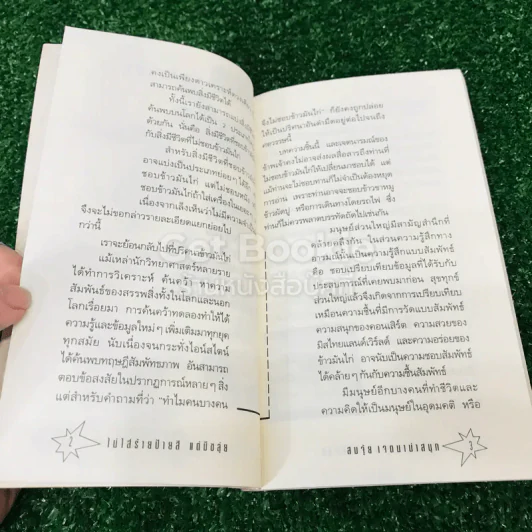 คงเป็นเพียงดาวเคราะห์ดวงเดียว
สามารถค้นพบสิ่งมีชีวิตได้
ทั้งนี้เรายังสามารถแบ่งสิ่งมีชีวิต
ค้นพบบนโลกได้เป็น 2 ประเภท
ด้วยกัน นั่นคือ สิ่งมีชีวิตที่ชอบ
กับสิ่งมีชีวิตที่ไม่ชอบข้าวมันไก่
สำหรับสิ่งมีชีวิตที่
อาจแบ่งเป็นประเภทย่อยๆ ได้อีก
ชอบข้าวมันไก่ แต่ไม่ชอบหนัง
ชอบข้าวมันไก่ถ้าไก่ใส่เครื่องใน
เนื่องจากเล็งเห็นว่าไม่มีความ
จึงจะไม่ขอกล่าวรายละเอียดแยกย่อยไป
กว่านี้
เราจะย้อนกลับไปที่ปริศนาข้าวมันไก่
แม้เหล่านักวิทยาศาสตร์หลายราย
ได้ทำการวิเคราะห์ ค้นคว้า
สัมพันธ์ของสรรพสิ่งทั้งในโลกและนอก
โลกเรื่อยมา การค้นคว้าทดลองทำให้ได้
ความรู้และข้อมูลใหม่ๆ เพิ่มเติมมาทุกยุค
ทุกสมัย นับเนื่องจนกระทั่งไอน์สไตน์
ได้ค้นพบทฤษฎีสัมพัทธภาพ อันสามารถ
ตอบข้อสงสัยในปรากฏการณ์หลายๆ สิ่ง
แต่สำหรับคำถามที่ว่า "ทำไมคนบางคน
2 ไม่ใส่ร้ายป้ายสี แต่มีอลุ่ย
จึงไม่ชอบข้าวมันไก่" ก็ยังคงถูกปล่อย
ให้เป็นปริศนาอันดำมืดอยู่ต่อไปจนถึง
ศตวรรษนี้
บทความชิ้นนี้ และเจตนารมณ์ของ
ข้าพเจ้าคงไม่อาจส่งผลสื่อสารถึงท่านที่
ไม่ชอบข้าวมันไก่ให้เปลี่ยนมาชอบได้ แต่
แม้ท่านจะไม่ชอบท่านก็ไม่จำเป็นต้องหยุด
การอ่าน เพราะท่านอาจจะชอบข้าวขาหมู
ข้าวผัดปู หรือการเดินทางโดยรถไฟ ซึ่ง
ท่านก็ไม่ควรพลาดบรรทัดถัดไปเช่นกัน
มนุษย์ส่วนใหญ่มีสามัญสำนึกที่
คล้ายคลึงกัน ในส่วนความรู้สึกทาง
อารมณ์นั้นเป็นความรู้สึกแบบสัมพัทธ์
คือ ชอบเปรียบเทียบข้อมูลที่ได้รับกับ
ประสบการณ์ที่เคยพบมาก่อน สุขทุกข์
ส่วนใหญ่แล้วจึงเกิดจากการเปรียบเทียบ
เหมือนความชื้นที่มีการวัดแบบสัมพัทธ์
ความสนุกของคอนเสิร์ต ความสวยของ
มิสไทยแลนด์เวิร์ลด์ และความอร่อยของ
ข้าวมันไก่ อาจนับเป็นความชอบสัมพัทธ์
ได้คล้ายๆ กันกับความชื้นสัมพัทธ์
มีมนุษย์อีกบางคนที่ทำชีวิตและ
ความคิดให้เป็นมนุษย์ในอุดมคติ หรือ
3
Get Books
ร้านหนังสือน่า